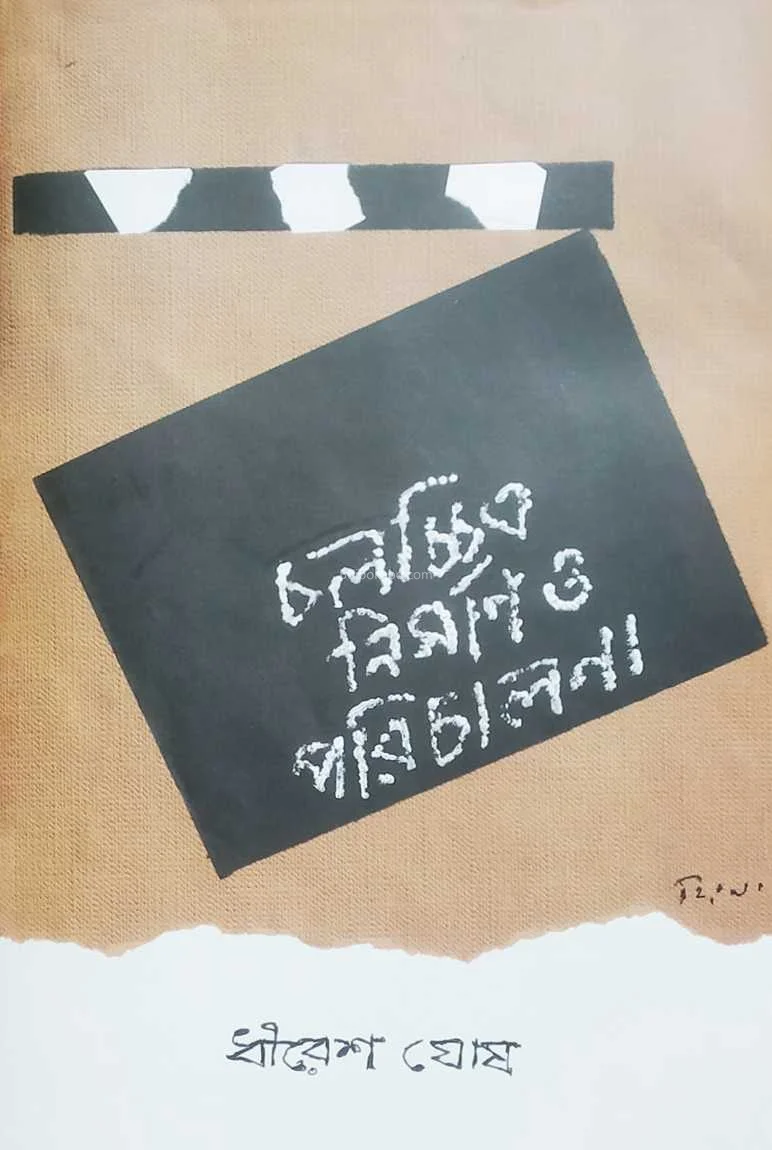 চলচ্চিত্র
নির্মাণ ও
পরিচালনা
ধীরেশ ঘোষ